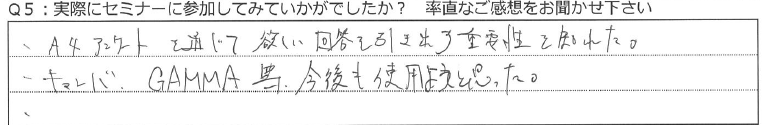 Q5：実際にセミナーに参加してみていかがでしたか？　率直なご感想をお聞かせ下さい
、A4アンケートを通じて欲しい回答を引き出す重要性を知れた。
・キャンバ、GAMMA 等、今後も使用しようと思った。
、